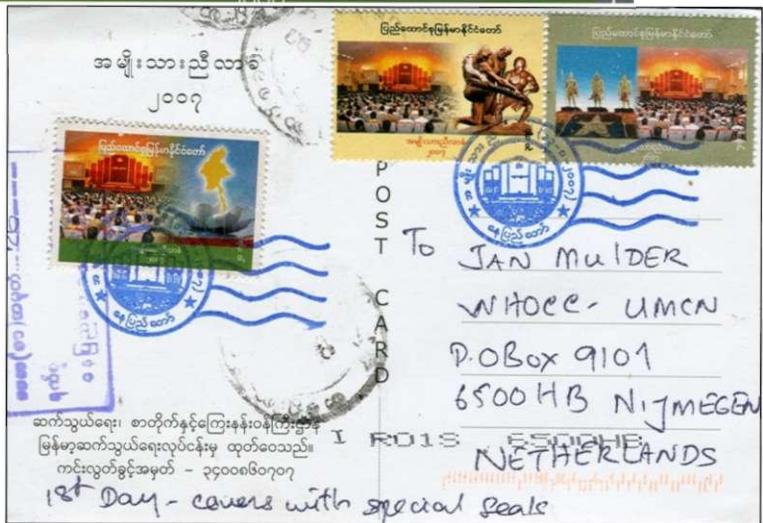 အမျိုးသားညီလာခံ
၂၀၀၇
ပြည်ထောင်စုမြန်မာနိုင်ငံတော်
အမျိုးသားညီလာခံ
၂၀၀၇
ပြည်ထောင်စုမြန်မာနိုင်ငံတော်
ပြည်ထောင်စုမြန်မာနိုင်ငံတော်
၂၀၀၇
နေပြည်တော်
နေပြည်တော်
POST CARD
To JAN MULDER
WHOCC - UMCN
P.O BOX 9101
6500 HB NIJMEGEN
NETHERLANDS
ဆက်သွယ်ရေး၊ စာတိုက်နှင့်ကြေးနန်းဝန်ကြီးဌာန
မြန်မာ့ဆက်သွယ်ရေးလုပ်ငန်းမှ ထုတ်ဝေသည်။
ကင်းလွတ်ခွင့်အမှတ် – ၃၄၀၀၈၆၀၇၀၇
1st Day - covers with special seals